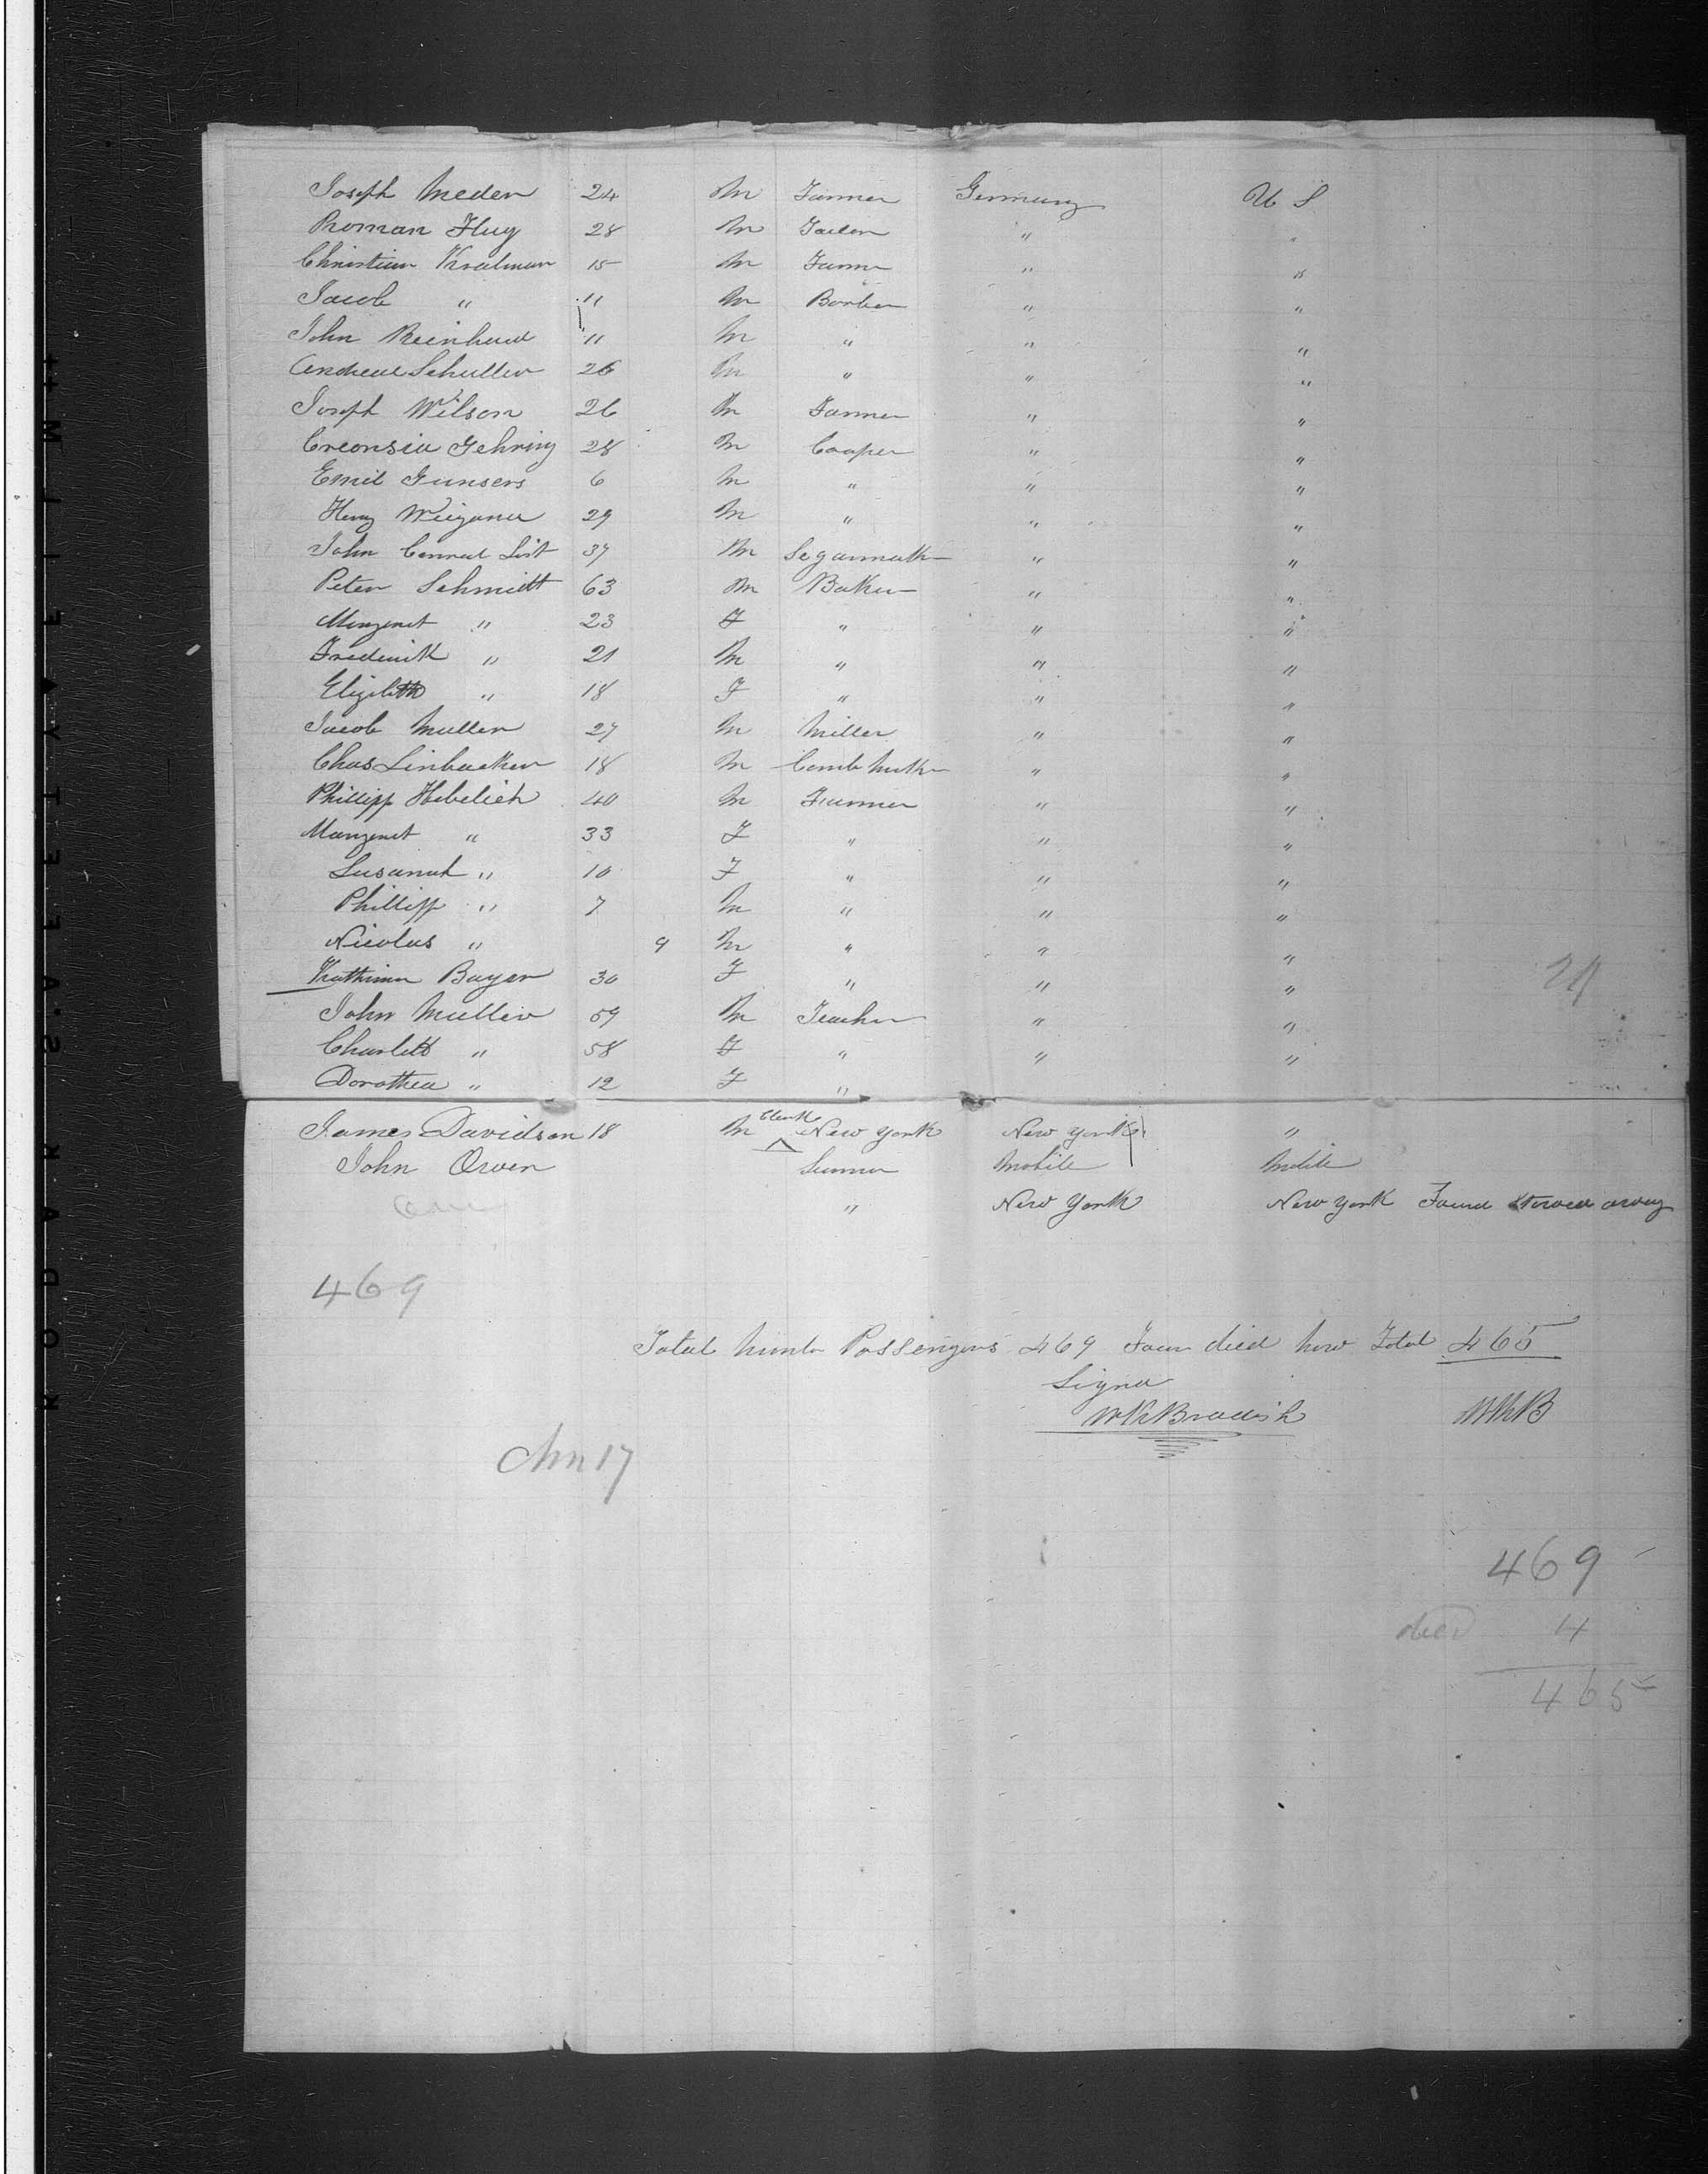 Joseph Meder 24 M Farmer Germany U S
Roman Hug 28 M Tailor " "
Christian Kralman 15 M Farmr " "
Jacob " 11 M Barber " "
John Reinhard 11 M " " "
Andreas Schuller 26 M " " "
Joseph Wilson 26 M Farmer " "
Gehring 28 M Cooper " "
Emil Gunsers 6 M " " "
Henry Wiegand 29 M " " "
John Conrad List 37 M Segarmakr " "
Peter Schmidt 63 M Baker " "
Margaret " 23 F " " "
Frederick " 21 M " " "
Elizabeth " 18 F " " "
Jacob Muller 27 M Miller " "
Chas Linbacker 18 M Comb Makr " "
Phillipp Hebelich 40 M Farmer " "
Margaret " 33 F " " "
Susanah " 10 F " " "
Phillipp " 7 M " " "
Nicolas " 9 M " " "
Kathrina Bayer 30 F " " "
24
John Muller 59 M Teacher " "
Charlott " 58 F " " "
Dorothea " 12 F "
James Davidson 18 M Clerk New York New York "
John Owen Mobile Mobile
" New York New York Found Stowed away
469
Total Numbr Passengers 469 Four died now Total 465
Signed
Bradish WKB
469
died 4
465